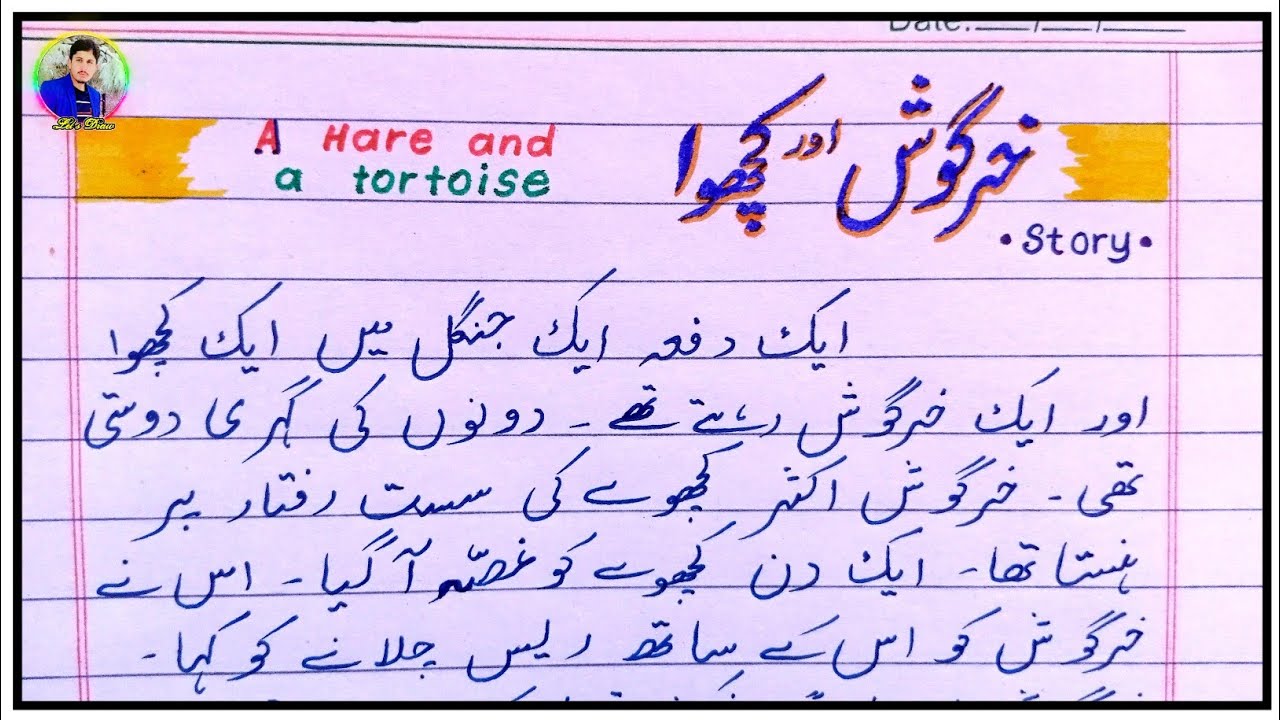 Date: __/__/____
Let's Draw
A Hare and
a tortoise
خرگوش اور کچھوا
• Story •
ایک دفعہ ایک جنگل میں ایک کچھوا
اور ایک خرگوش رہتے تھے ۔ دونوں کی گہری دوستی
تھی ۔ خرگوش اکثر کچھوے کی سست رفتار پر
ہنستا تھا ۔ ایک دن کچھوے کو غصّہ آ گیا ۔ اس نے
خرگوش کو اس کے ساتھ ریس چلانے کو کہا ۔